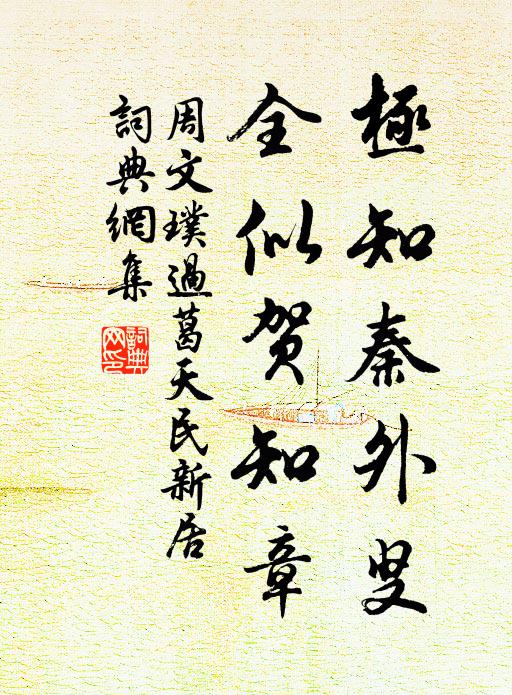 極知秦外叟
全似賀知章
周文璞過葛天民新居
詞典網集
詞典網印